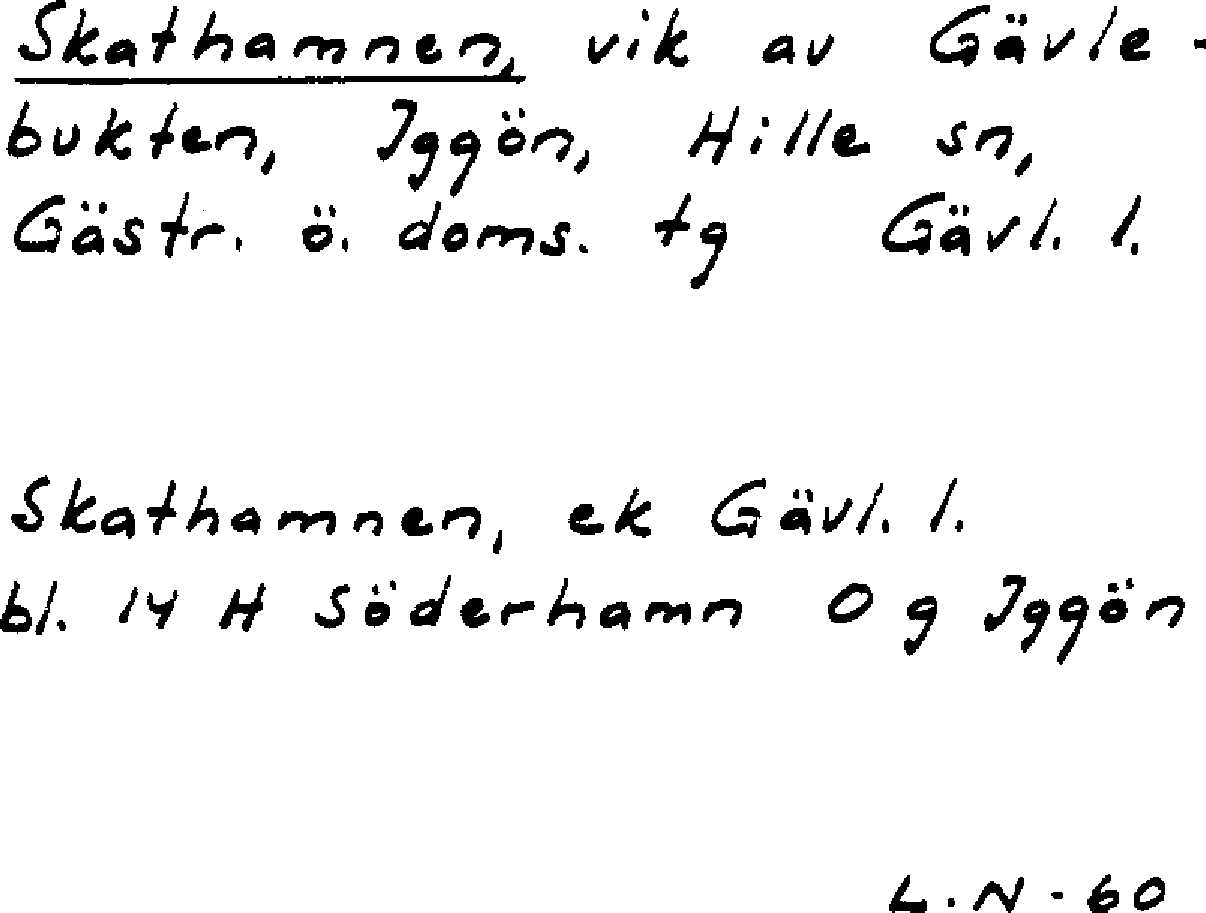 Skathamnen, vik av Gävle-
bukten, Iggön, Hille sn,
Gästr. ö. doms. tg Gävl. l.
Skathamnen, ek Gävl. l.
bl. 14 H Söderhamn 0 g Iggön
L.N-60